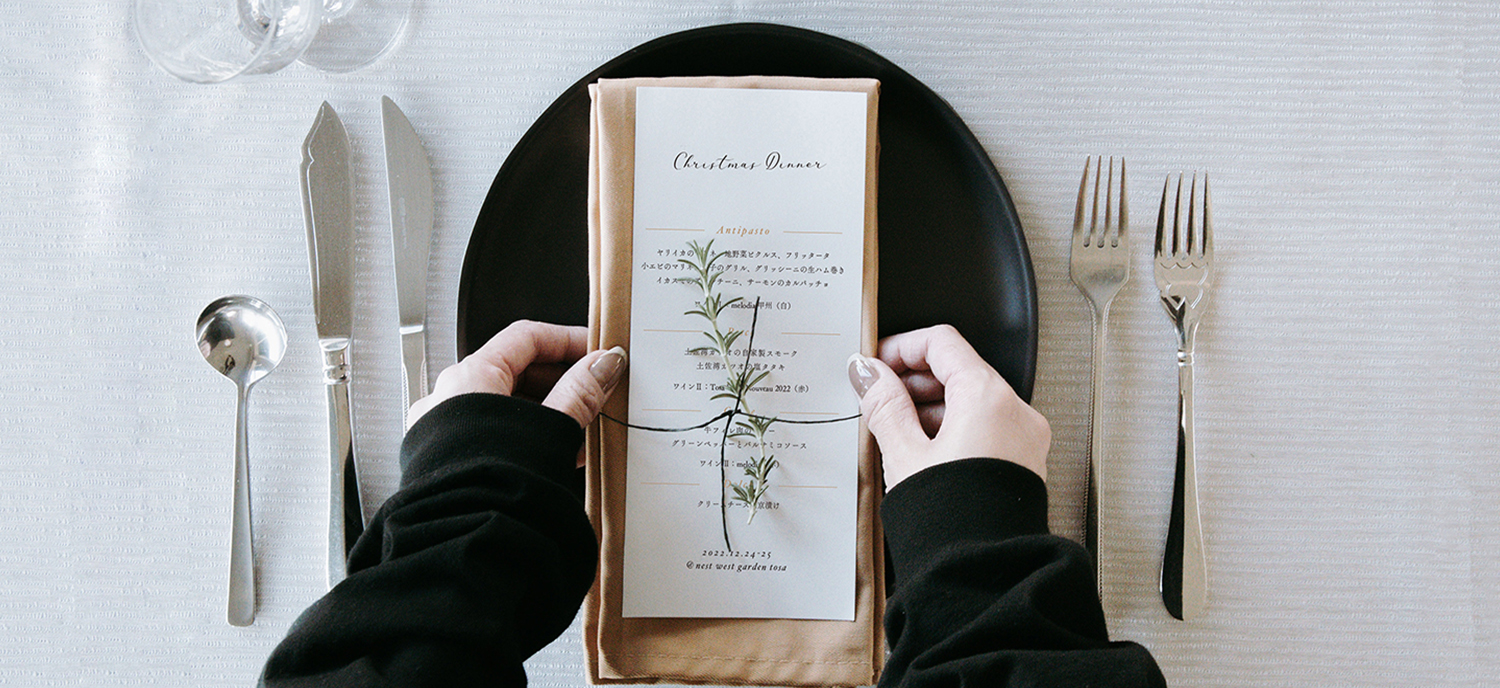 Christmas Dinner
Antipasto
ヤリイカの 地野菜ピクルス、フリッタータ
小エビのマリネ 子のグリル、グリッシーニの生ハム巻き
イカス チーニ、サーモンのカルパッチョ
melodia 甲州（白）
土佐湾 ツオの自家製スモーク
土佐湾 ツオの塩タタキ
ワインⅡ：Tosa Nouveau 2022（赤）
牛フィレ肉の
グリーンペッパーとバルサミコソース
ワインⅡ：melodia
クリームチーズ 京漬け
2022.12.24-25
@nest west garden tosa